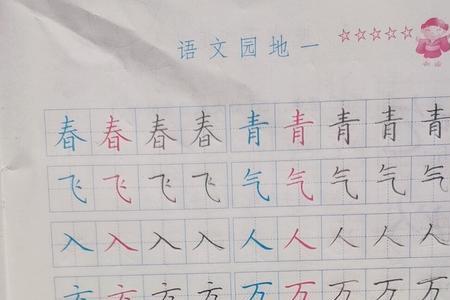 语文园地一
春春春春青青青青青
飞飞飞飞气气气气气
入入入入人人人人人
方方方方万万万万万